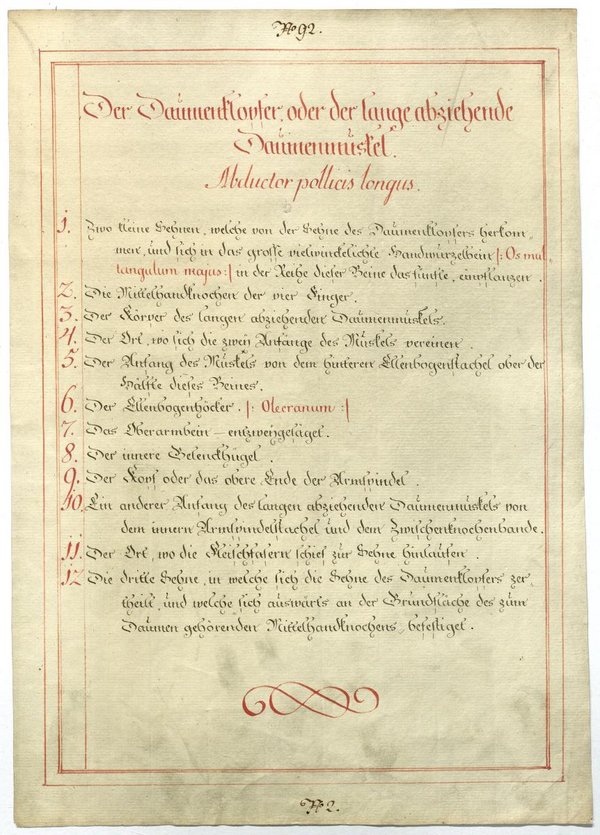 No 92.
Der Daumenklopfer, oder der lange abziehende
Daumenmuskel.
Abductor pollicis longus.
1. Zwo kleine Sehnen, welche von der Sehne des Daumenklopfers herkom-
men, und sich in das grosse vielwinckelichte Handwurzelbein |: Os mul
tangulum majus :| in der Reihe dieser Beine das fünfte, einpflanzen.
2. Die Mittelhandknochen der vier Finger.
3. Der Körper des langen abziehenden Daumenmuskels.
4. Der Ort, wo sich die zwey Anfänge des Muskels vereinen.
5. Der Anfang des Muskels von dem hinteren Ellenbogenstachel ober der
Hälfte dieses Beines.
6. Der Ellenbogenhöcker. |: Olecranum :|
7. Das Oberarmbein – entzweygesäget.
8. Der innere Gelenckhügel.
9. Der Kopf oder das obere Ende der Armspindel.
10. Ein anderer Anfang des langen abziehenden Daumenmuskels von
dem innern Armspindelstachel und dem Zwischenknochenbande.
11. Der Ort, wo die Fleischfasern schief zur Sehne hinlaufen.
12. Die dritte Sehne, in welche sich die Sehne des Daumenklopfers zer-
theilt, und welche sich auswärts an der Grundfläche des zum
Daumen gehörenden Mittelhandknochens befestiget.
No 2.